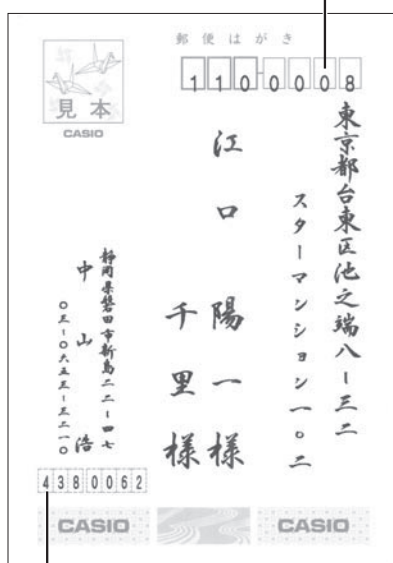 郵便はがき
110-0008
東京都台東区池之端八ー三二
スターマンション一〇二
江口 陽一様
千里様
静岡県磐田市新島二二ー四七
中山 浩
〇三ー〇六五三ー三二一〇
4380062
見本
CASIO
CASIO
CASIO